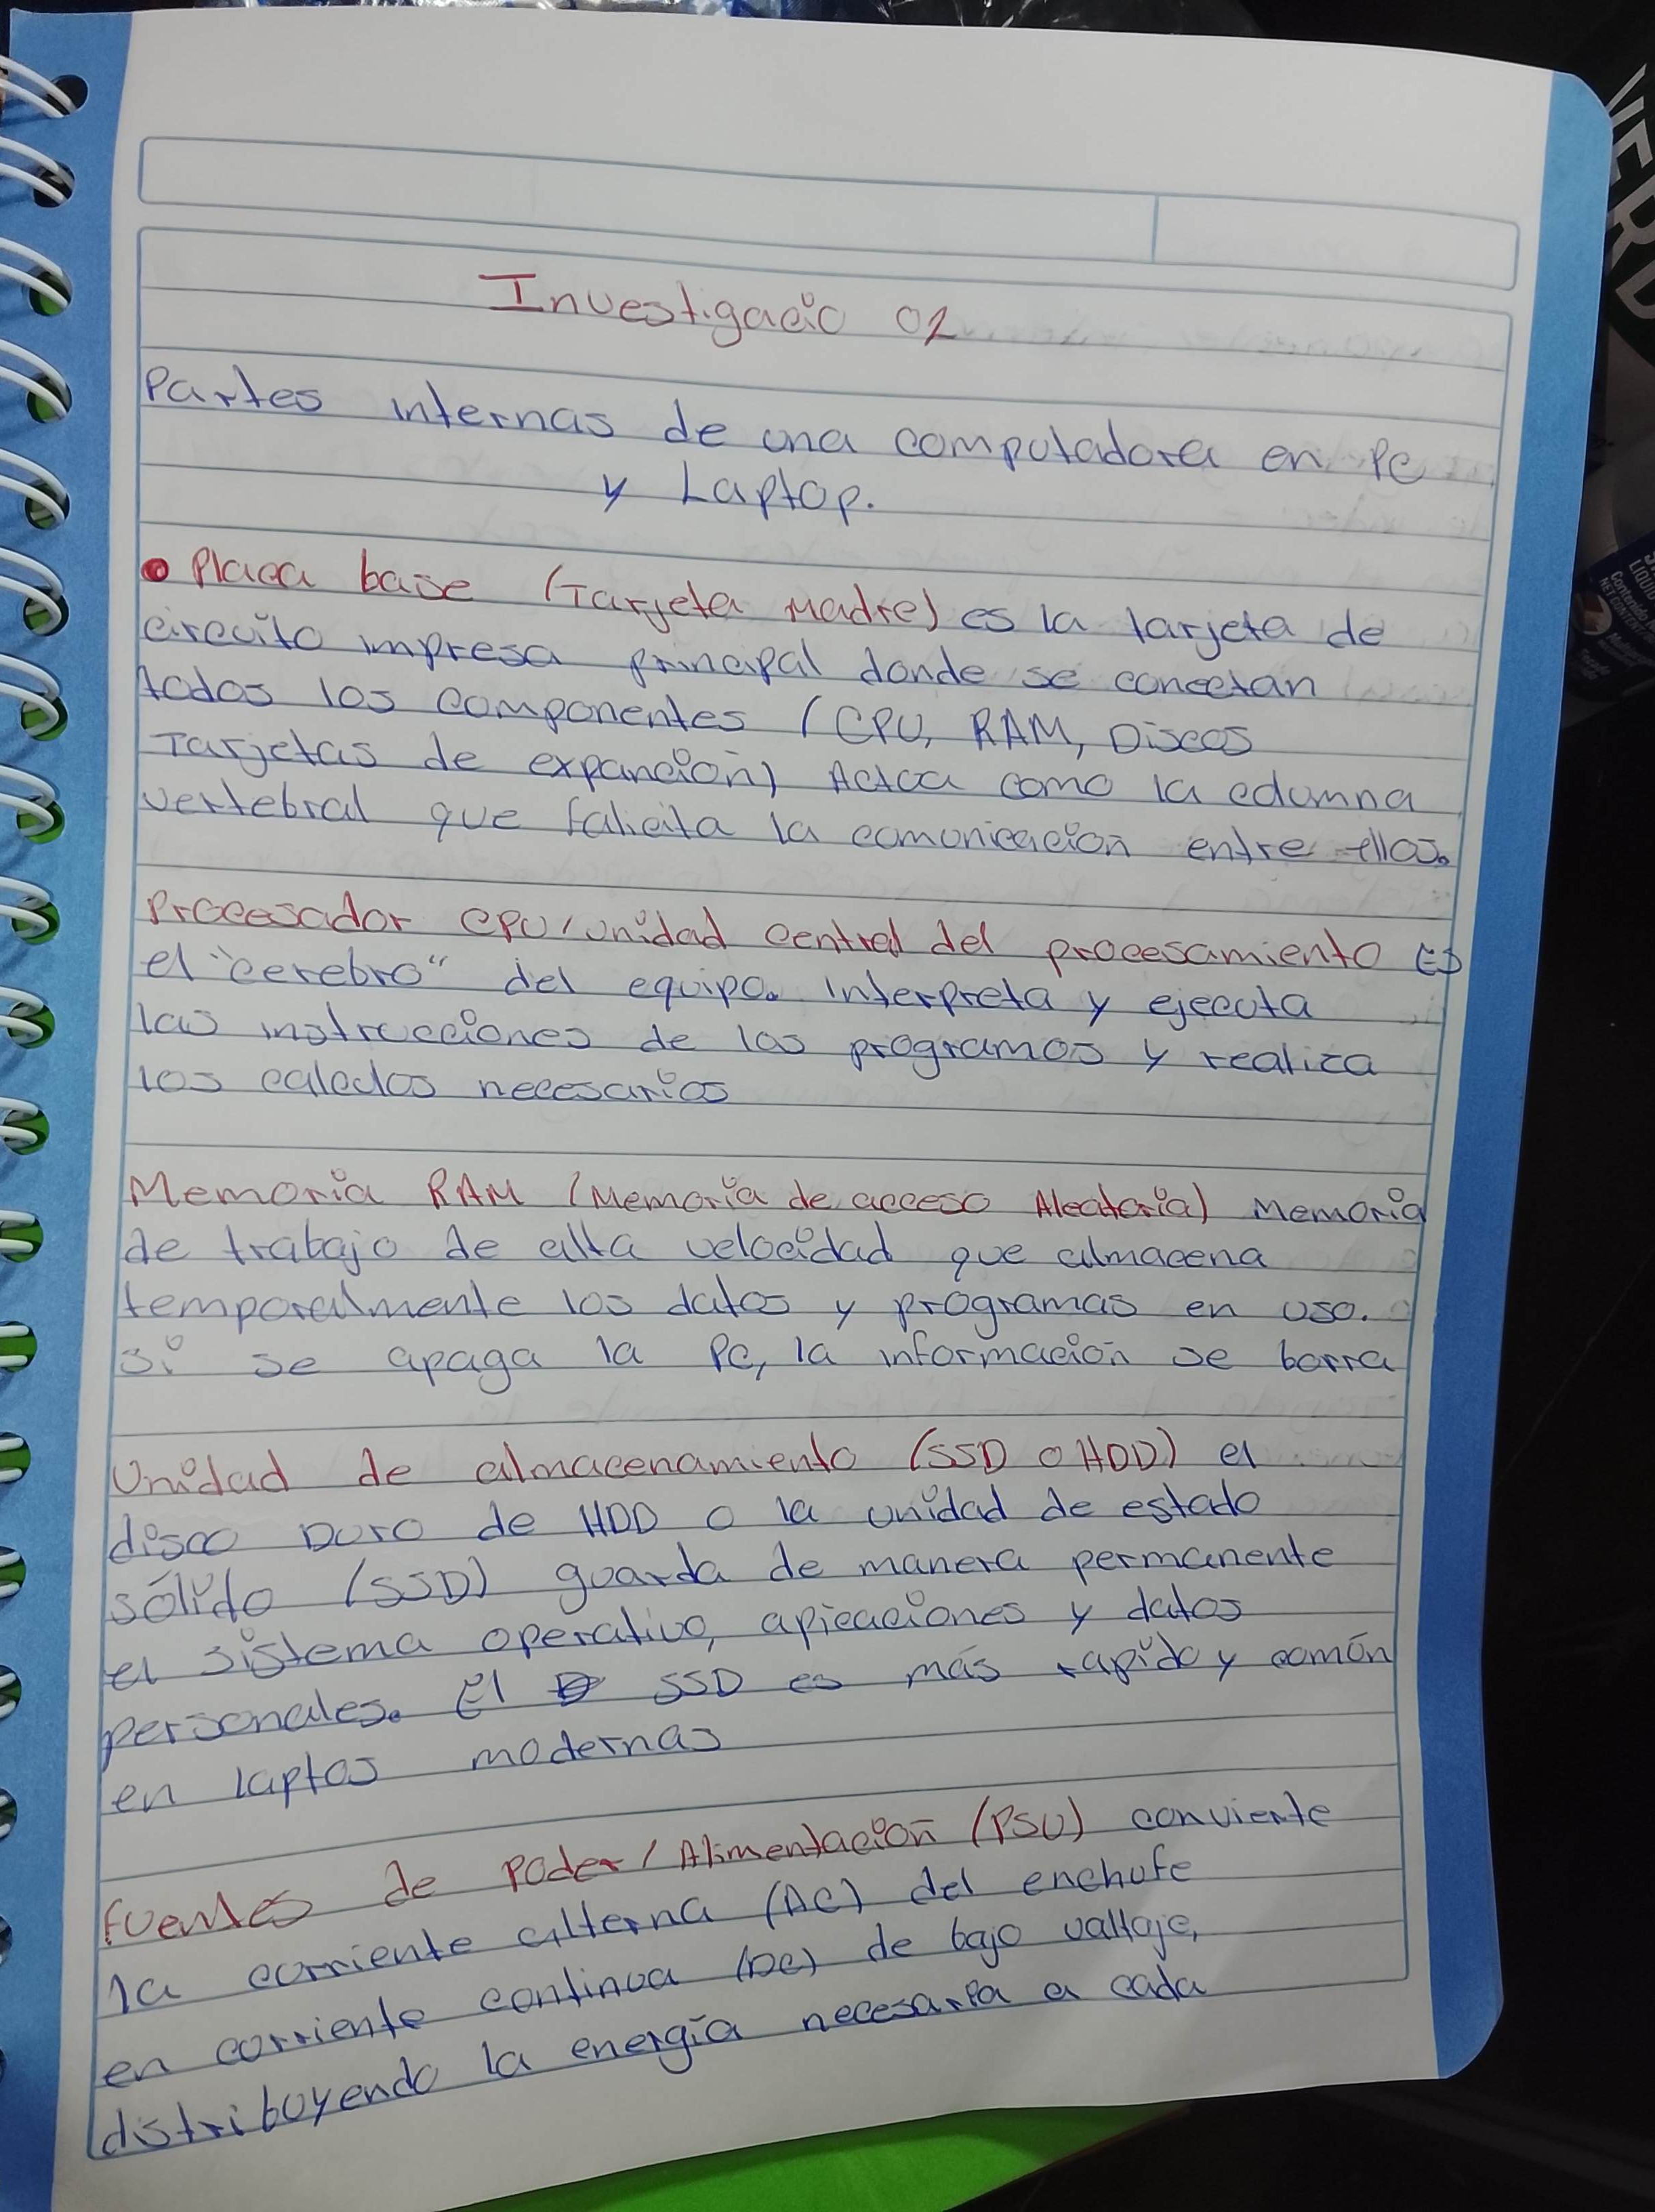 Investigacio 01
Partes internas de una computadora en PC
y Laptop.
• Placa base (Tarjeta Madre) es la tarjeta de
circuito impresa principal donde se conectan
todos los componentes (CPU, RAM, Discos
Tarjetas de expancion) Actua como la columna
vertebral que falicita la comunicación entre ellos.
Procesador CPU/unidad central del procesamiento Es
el "cerebro" del equipo. Interpreta y ejecuta
las instrucciones de los programas y realiza
los calculos necesarios
Memoria RAM (Memoria de acceso Aleatoria) Memoria
de trabajo de alta velocidad que almacena
temporalmente los datos y programas en uso.
si se apaga la PC, la información se borra
Unidad de almacenamiento (SSD o HDD) el
disco Duro de HDD o la unidad de estado
sólido (SSD) guarda de manera permanente
el sistema operativo, apicaciones y datos
personales. El SSD es más rapido y común
en laptos modernas
fuentes de Poder/Alimentación (PSU) conviente
la corriente alterna (AC) del enchufe
en corriente continua (DC) de bajo valtaje,
distribuyendo la energía necesaria a cada
VERD
LIQUID
Contenido
NET CONTENT